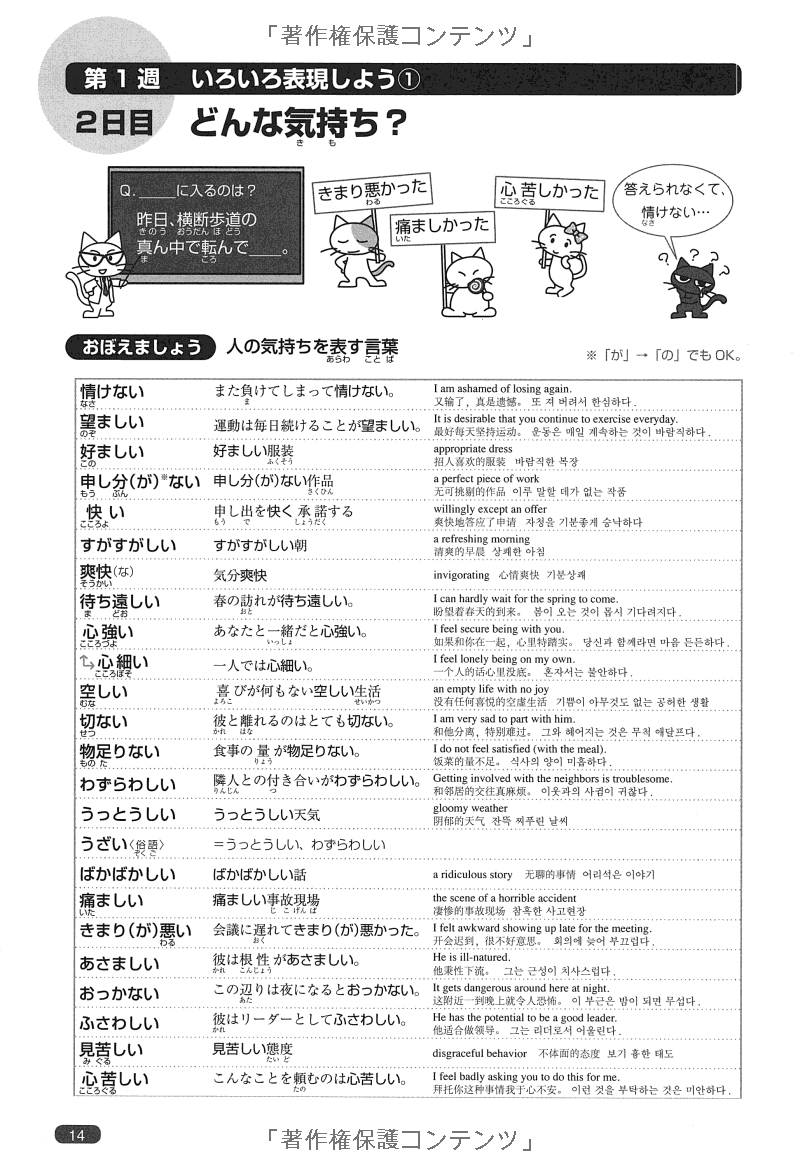 「著作権保護コンテンツ」
第1週 いろいろ表現しよう①
2日目 どんな気持ち？
き も
Q. ____に入るのは？
昨日、横断歩道の
きのう おうだんほどう
真ん中で転んで____。
ま ころ
きまり悪かった
わる
痛ましかった
いた
心苦しかった
こころぐる
答えられなくて、
情けない…
なさ
? ? ? ?
おぼえましょう 人の気持ちを表す言葉
あらわ ことば
※「が」→「の」でもOK。
情けない また負けてしまって情けない。 I am ashamed of losing again.
なさ ま 又输了，真是遗憾。 또 져 버려서 한심하다.
望ましい 運動は毎日続けることが望ましい。 It is desirable that you continue to exercise everyday.
のぞ 最好每天坚持运动。 운동은 매일 계속하는 것이 바람직하다.
好ましい 好ましい服装 appropriate dress
この ふくそう 招人喜欢的服装 바람직한 복장
申し分(が)※ない 申し分(が)ない作品 a perfect piece of work
もう ぶん さくひん 无可挑剔的作品 이루 말할 데가 없는 작품
快い 申し出を快く承諾する willingly except an offer
こころよ もう で しょうだく 爽快地答应了申请 자청을 기분좋게 승낙하다
すがすがしい すがすがしい朝 a refreshing morning
清爽的早晨 상쾌한 아침
爽快(な) 気分爽快 invigorating 心情爽快 기분상쾌
そうかい
待ち遠しい 春の訪れが待ち遠しい。 I can hardly wait for the spring to come.
ま どお おと 盼望着春天的到来。 봄이 오는 것이 몹시 기다려지다.
心強い あなたと一緒だと心強い。 I feel secure being with you.
こころづよ いっしょ 如果和你在一起，心里特踏实。 당신과 함께라면 마음 든든하다.
心細い 一人では心細い。 I feel lonely being on my own.
こころぼそ 一个人的话心里没底。 혼자서는 불안하다.
空しい 喜びが何もない空しい生活 an empty life with no joy
むな よろこ せいかつ 没有任何喜悦的空虚生活 기쁨이 아무것도 없는 공허한 생활
切ない 彼と離れるのはとても切ない。 I am very sad to part with him.
せつ かれ はな 和他分离，特别难过。 그와 헤어지는 것은 무척 애달프다.
物足りない 食事の量が物足りない。 I do not feel satisfied (with the meal).
もの た りょう 饭菜的量不足。 식사의 양이 미흡하다.
わずらわしい 隣人との付き合いがわずらわしい。 Getting involved with the neighbors is troublesome.
りんじん つ 和邻居的交往真麻烦。 이웃과의 사귐이 귀찮다.
うっとうしい うっとうしい天気 gloomy weather
阴郁的天气 잔뜩 찌푸린 날씨
うざい〈俗語〉 ＝うっとうしい、わずらわしい
ぞくご
ばかばかしい ばかばかしい話 a ridiculous story 无聊的事情 어리석은 이야기
痛ましい 痛ましい事故現場 the scene of a horrible accident
いた じこげんば 凄惨的事故现场 참혹한 사고현장
きまり(が)悪い 会議に遅れてきまり(が)悪かった。 I felt awkward showing up late for the meeting.
わる おく 开会迟到，很不好意思。 회의에 늦어 부끄럽다.
あさましい 彼は根性があさましい。 He is ill-natured.
かれ こんじょう 他秉性下流。 그는 근성이 치사스럽다.
おっかない この辺りは夜になるとおっかない。 It gets dangerous around here at night.
あた 这附近一到晚上就令人恐怖。 이 부근은 밤이 되면 무섭다.
ふさわしい 彼はリーダーとしてふさわしい。 He has the potential to be a good leader.
かれ 他适合做领导。 그는 리더로서 어울린다.
見苦しい 見苦しい態度 disgraceful behavior 不体面的态度 보기 흉한 태도
み ぐる たいど
心苦しい こんなことを頼むのは心苦しい。 I feel badly asking you to do this for me.
こころぐる たの 拜托你这种事情我于心不安。 이런 것을 부탁하는 것은 미안하다.
14
「著作権保護コンテンツ」